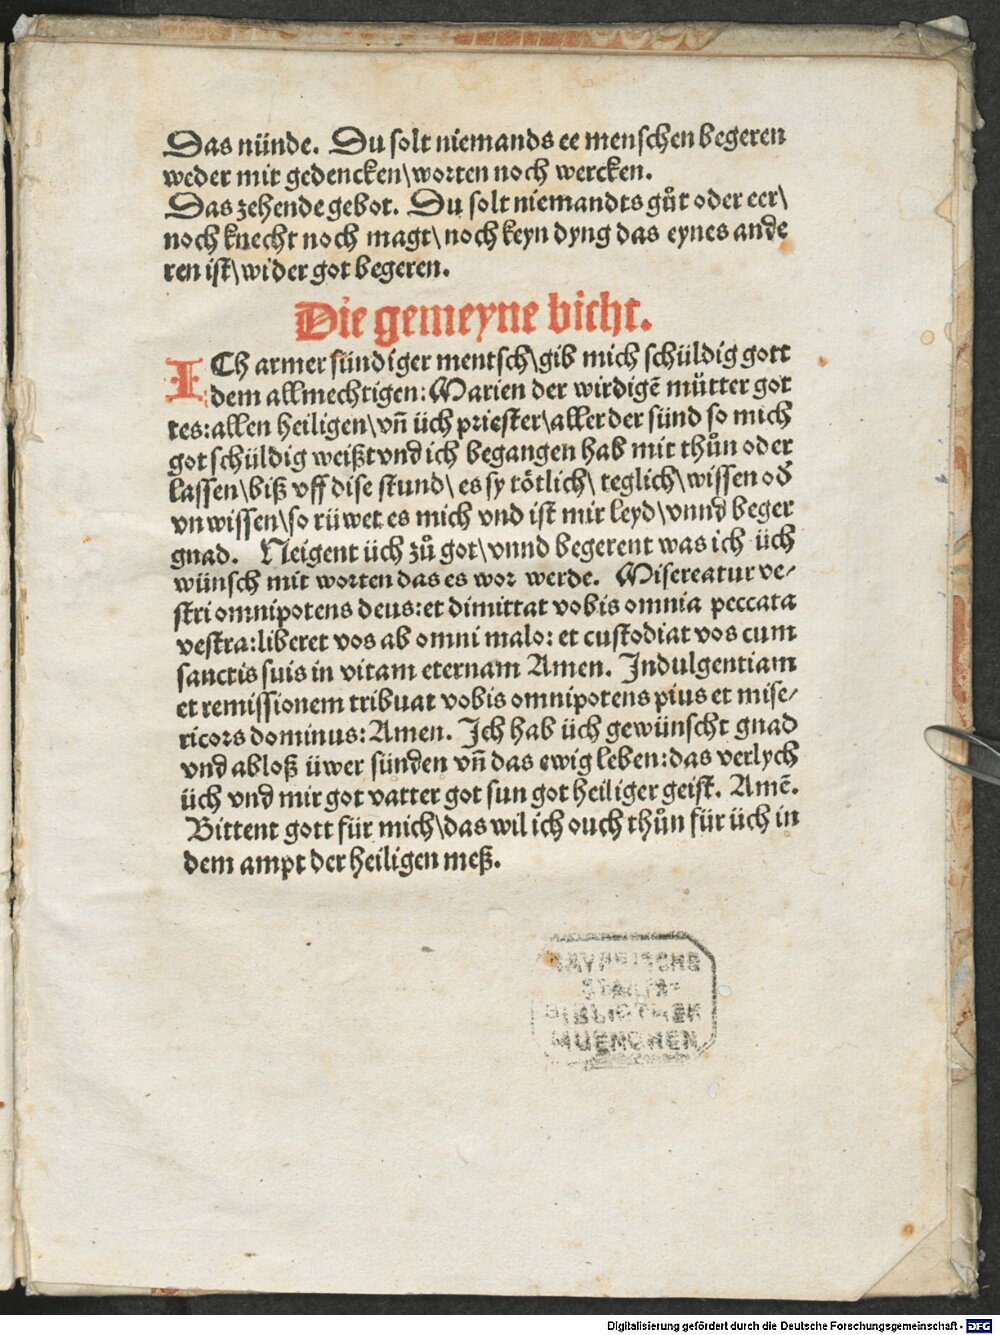 Das nünde. Du solt niemands ee menschen begeren
weder mit gedencken\worten noch wercken.
Das zehende gebot. Du solt niemandts gůt oder eer\
noch knecht noch magt\noch keyn dyng das eynes ande
ren ist\wider got begeren.
Die gemeyne bicht.
ICh armer sündiger mentsch\gib mich schüldig gott
dem allmechtigen: Marien der wirdigē mütter got
tes: allen heiligen\vn̄ üch priester\aller der sünd so mich
got schüldig weißt vnd ich begangen hab mit thůn oder
lassen\biß vff dise stund\ es sy tötlich\ teglich\wissen od
vnwissen\so rüwet es mich vnd ist mir leyd\vnnd beger
gnad. Neigent üch zů got\vnnd begerent was ich üch
wünsch mit worten das es wor werde. Misereatur ve/
stri omnipotens deus: et dimittat vobis omnia peccata
vestra: liberet vos ab omni malo: et custodiat vos cum
sanctis suis in vitam eternam Amen. Indulgentiam
et remissionem tribuat vobis omnipotens pius et mise/
ricors dominus: Amen. Ich hab üch gewünscht gnad
vnd abloß üwer sünden vn̄ das ewig leben: das verlych
üch vnd mir got vatter got sun got heiliger geist. Amē.
Bittent gott für mich\das wil ich ouch thůn für üch in
dem ampt der heiligen meß.
BAYERISCHE
STAATS-
BIBLIOTHEK
MUENCHEN
Digitalisierung gefördert durch die Deutsche Forschungsgemeinschaft - DFG